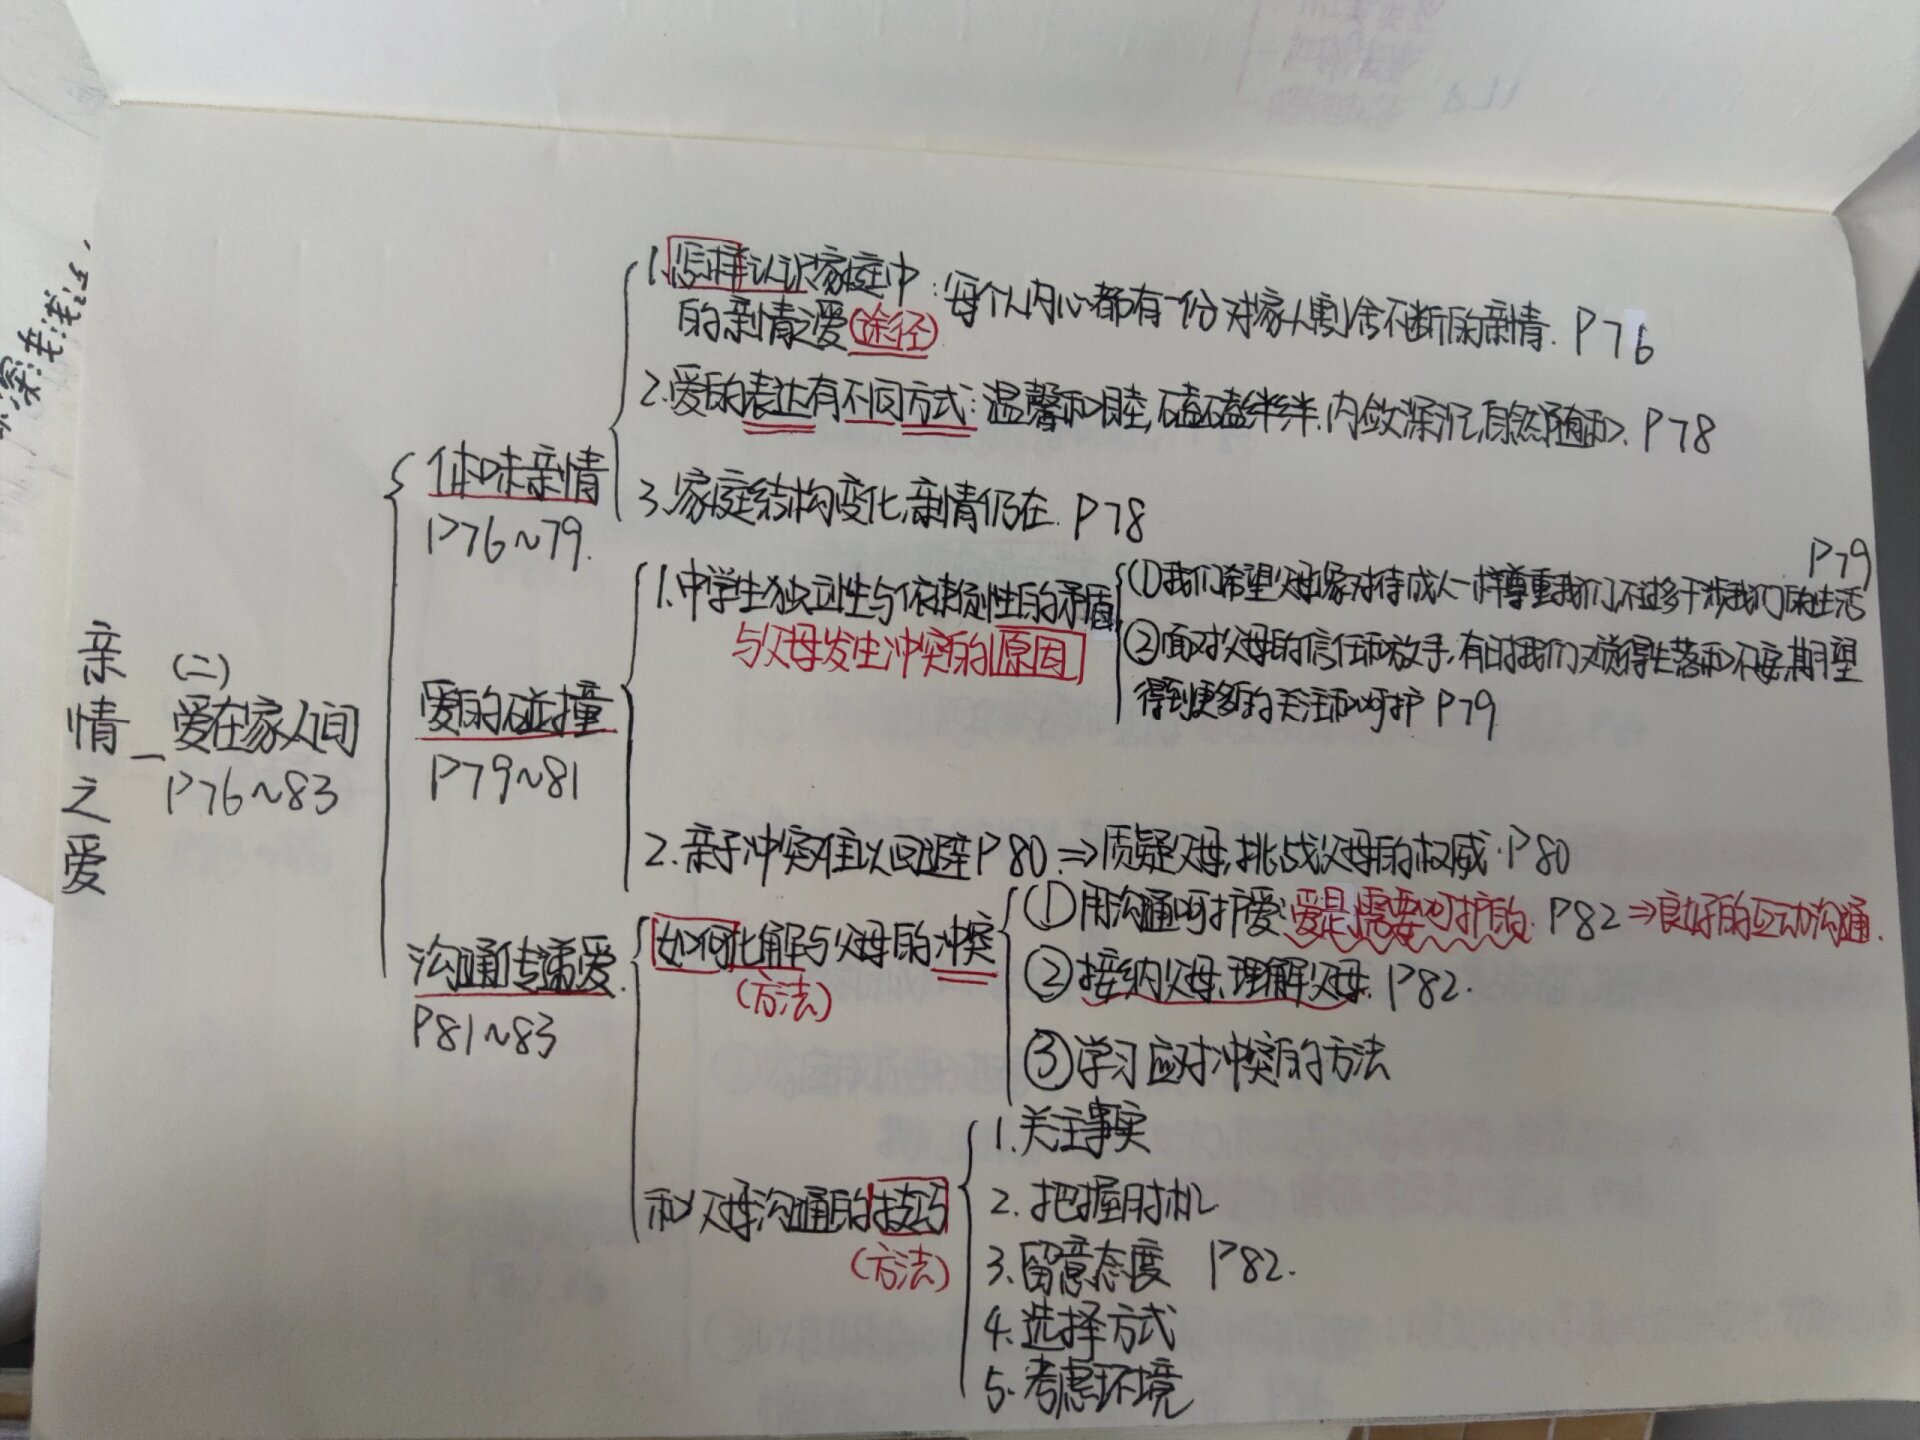 亲情之爱
(二)
爱在家人间
P76~83
体味亲情
P76~79.
1.怎样认识家庭中
的亲情之爱(途径)
:每个人内心都有一份对家人割舍不断的亲情. P76
2.爱的表达有不同方式:温馨和睦,磕磕绊绊.内敛深沉,自然随和. P78
3.家庭结构变化,亲情仍在. P78
爱的碰撞
P79~81
1.中学生独立性与依赖性的矛盾
与父母发生冲突的原因
P79
①我们希望父母像对待成人一样尊重我们,不过多干涉我们的生活
②面对父母的信任和放手,有时我们又觉得失落和不安,期望
得到更多的关注和呵护 P79
2.亲子冲突难以回避P80.⇒质疑父母,挑战父母的权威.P80
沟通传递爱.
P81~83
如何化解与父母的冲突
(方法)
①用沟通呵护爱:爱是需要呵护的. P82⇒良好的互动沟通.
②接纳父母,理解父母. P82.
③学习应对冲突的方法
和父母沟通的技巧
(方法)
1.关注事实
2.把握时机
3.留意态度 P82.
4.选择方式
5.考虑环境